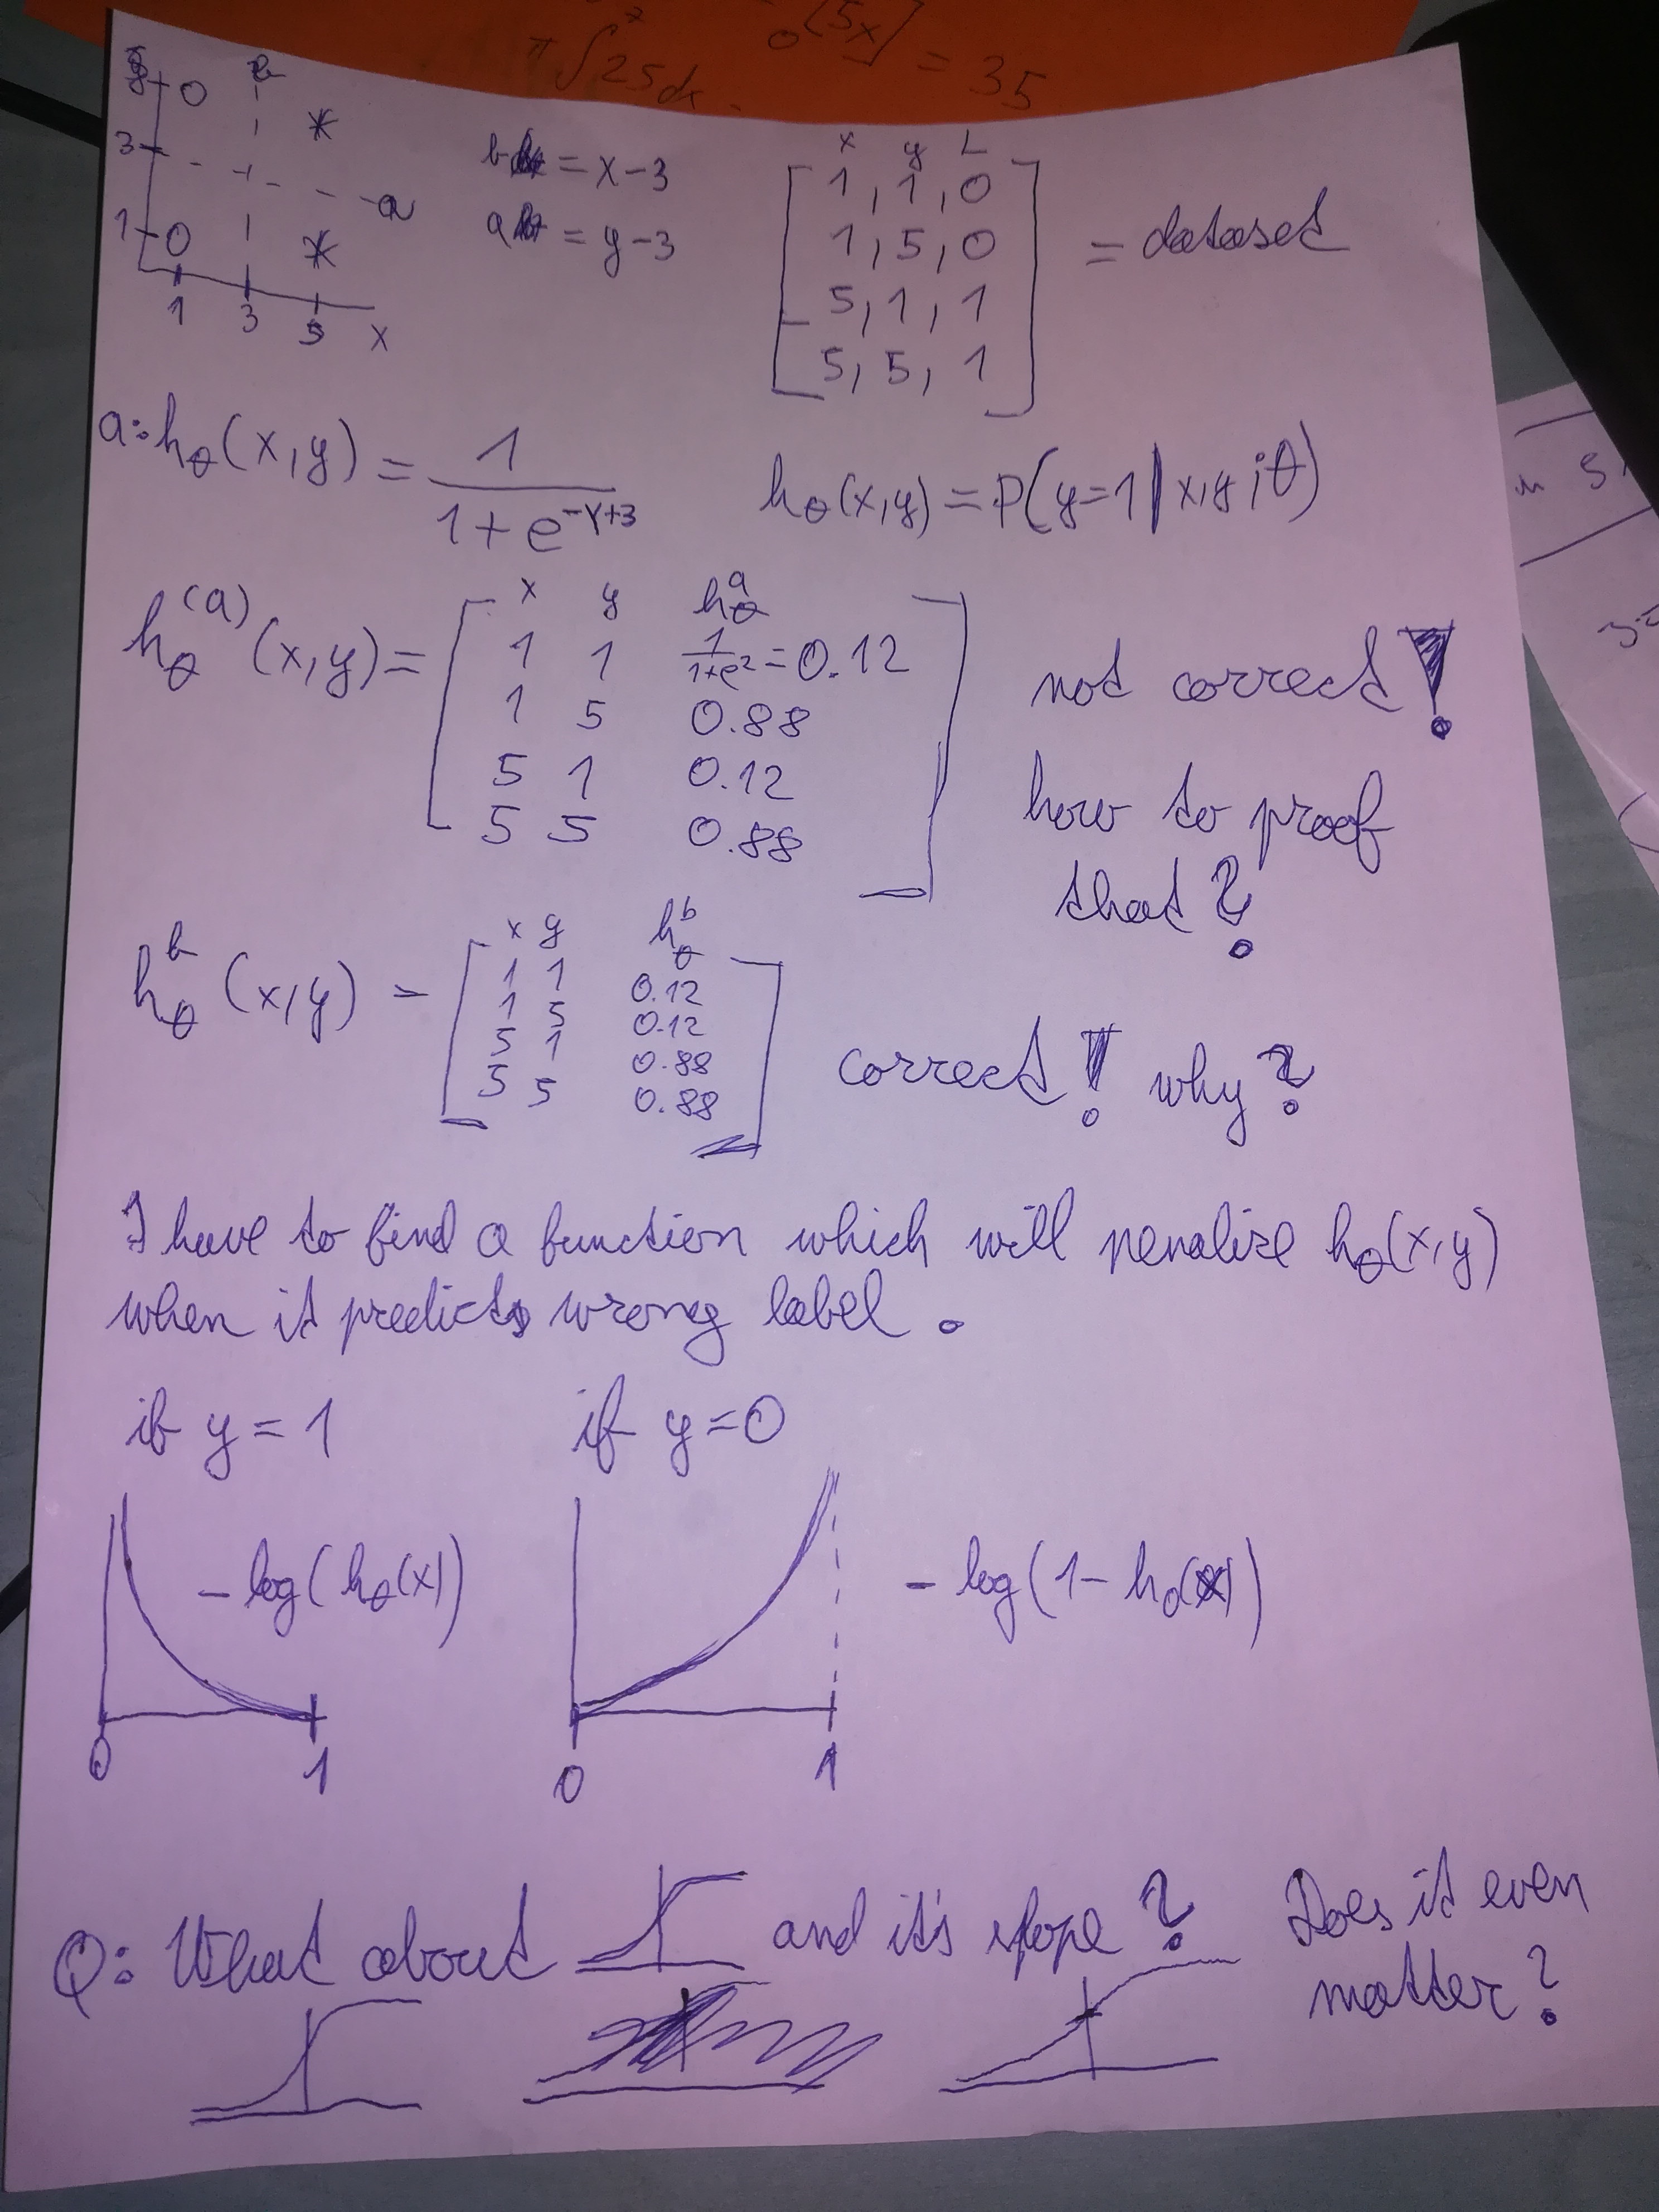 π∫25dx. 0[5x] = 35
5 0 b
3 *
a
1 0 *
1 3 5 x
b = x-3
a = y-3
x y L
1, 1, 0
1, 5, 0
5, 1, 1
5, 5, 1
= dataset
a: hθ(x,y) = 1/(1+e^(-y+3))
hθ(x,y) = P(y=1|x,y;θ)
hθ^(a)(x,y) =
x y hθ^a
1 1 1/(1+e^2)=0.12
1 5 0.88
5 1 0.12
5 5 0.88
not correct!
how to proof
that?
hθ^b(x,y) =
x y hθ^b
1 1 0.12
1 5 0.12
5 1 0.88
5 5 0.88
correct! why?
I have to find a function which will penalize hθ(x,y)
when it predicts wrong label.
if y=1 if y=0
-log(hθ(x)) -log(1-hθ(x))
0 1 0 1
Q: What about and it's slope? Does it even
matter?